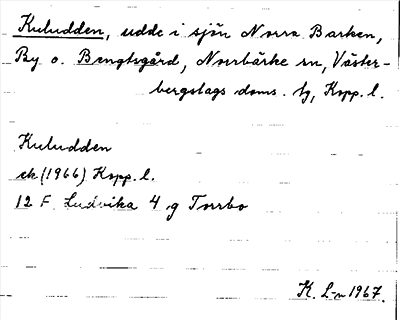 Kuludden, udde i sjön Norra Barken,
By o. Bengtsgård, Norrbärke sn, Väster-
bergslags doms. tg, Kopp. l.
Kuludden
ek (1966) Kopp. l.
12 F Ludvika 4 g Torrbo
K. L-n 1967.